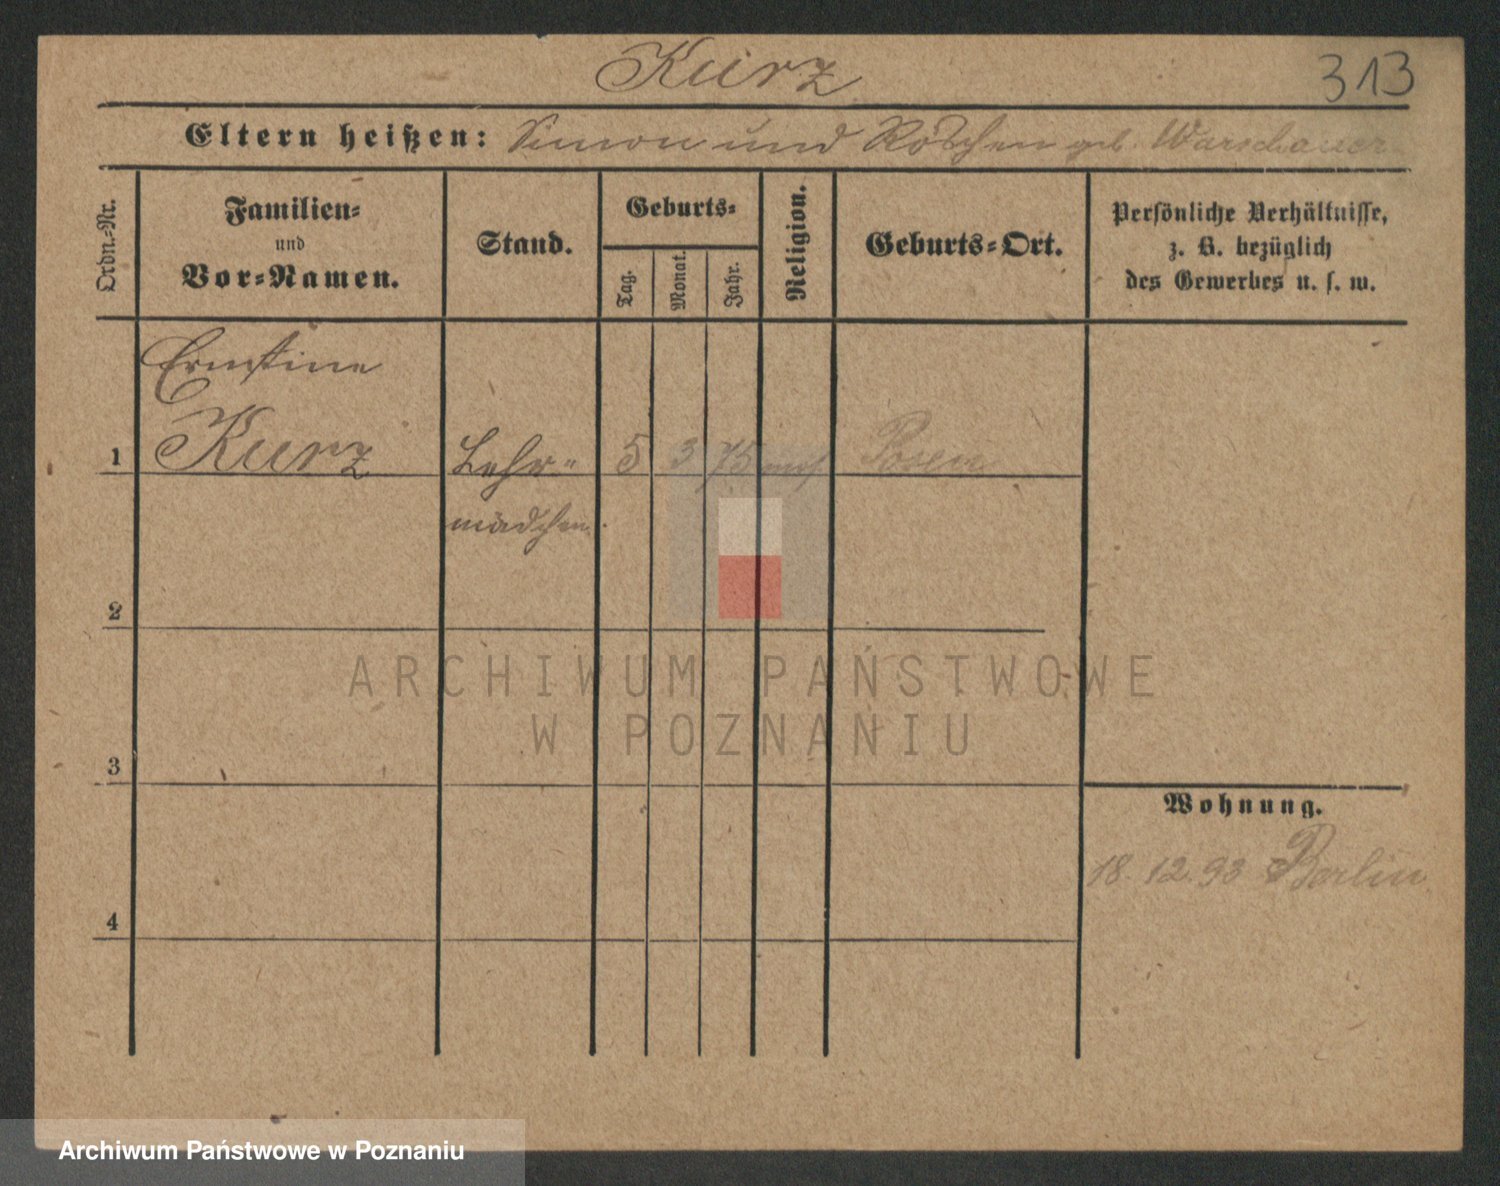 Kurz
313
Eltern heißen: Simon und Röschen geb. Warschauer
Ordn.-Nr.
Familien-
und
Vor-Namen.
Stand.
Geburts-
Tag.
Monat.
Jahr.
Religion.
Geburts-Ort.
Persönliche Verhältnisse,
z. B. bezüglich
des Gewerbes u. s. w.
Ernstine
1 Kurz Lehr- 5 3 75 mos Posen
mädchen.
2
ARCHIWUM PAŃSTWOWE
W POZNANIU
3
Wohnung.
18. 12. 93 Berlin
4
Archiwum Państwowe w Poznaniu